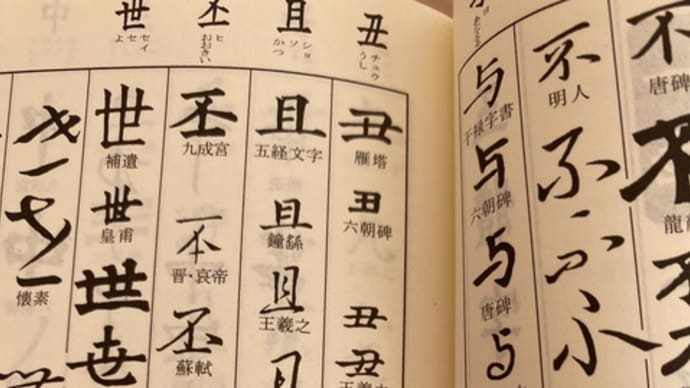 不
唐碑
不
明人
不
不
与
干禄字書
与
六朝碑
与
唐碑
与
丑
チュウ
うし
丑
雁塔
丑
六朝碑
丑
丑
王羲之
且
ショ
ソ
かつ
且
五経文字
且
鐘繇
且
王羲之
且
丕
ヒ
おおきい
丕
九成宮
丕
晋・哀帝
丕
蘇軾
世
セイ
セ
よ
世
補遺
世
皇甫
世
世
世
世
懐素